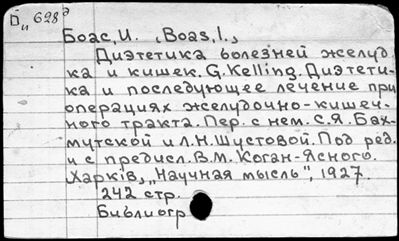 П 628 д
и
Боас, И. (Boas, I.,
Диэтетика болезней желуд
ка и кишек. G. Kelling. Диэтети-
ка и последующее лечение при
операциях желудочно-кишеч-
ного тракта. Пер. с нем. С.Я. Бах-
мутской и Л.Н. Шустовой. Под ред.
и с предисл. В.М. Коган-Ясного.
Харкiв, „Научная мысль", 1927.
242 стр.
Библиогр